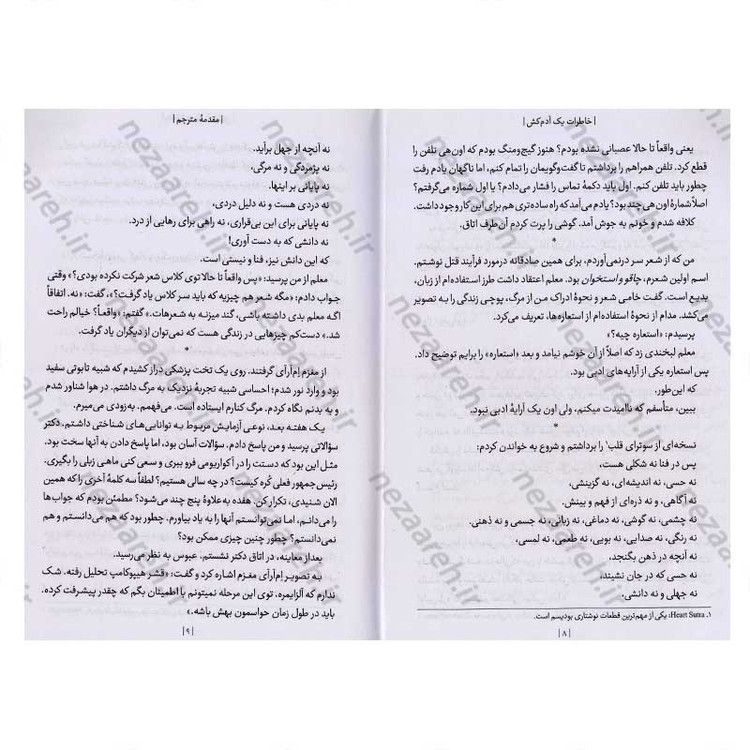 | خاطرات یک آدم‌کش |
یعنی واقعاً تا حالا عصبانی نشده بودم؟ هنوز گیج‌ومنگ بودم که اون‌هی تلفن را
قطع کرد. تلفن همراهم را برداشتم تا گفت‌وگویمان را تمام کنم، اما ناگهان یادم رفت
چطور باید تلفن کنم. اول باید دکمهٔ تماس را فشار می‌دادم؟ یا اول شماره می‌گرفتم؟
اصلاً شمارهٔ اون‌هی چند بود؟ یادم می‌آمد که راه ساده‌تری هم برای این کار وجود داشت.
کلافه شدم و خونم به جوش آمد. گوشی را پرت کردم آن‌طرف اتاق.
*
من که از شعر سر درنمی‌آوردم، برای همین صادقانه درمورد فرآیند قتل نوشتم.
اسم اولین شعرم، چاقو و استخوان بود. معلم اعتقاد داشت طرز استفاده‌ام از زبان،
بدیع است. گفت خامی شعر و نحوهٔ ادراک من از مرگ، پوچی زندگی را به تصویر
می‌کشد. مدام از نحوهٔ استفاده‌ام از استعاره‌ها، تعریف می‌کرد.
پرسیدم: «استعاره چیه؟»
معلم لبخندی زد که اصلاً از آن خوشم نیامد و بعد «استعاره» را برایم توضیح داد.
پس استعاره یکی از آرایه‌های ادبی بود.
که این‌طور.
ببین، متأسفم که ناامیدت میکنم، ولی اون یک آرایهٔ ادبی نبود.
*
نسخه‌ای از سوترای قلب۱ را برداشتم و شروع به خواندن کردم:
پس در فنا نه شکلی هست،
نه حسی، نه اندیشه‌ای، نه گزینشی،
نه آگاهی، و نه ذره‌ای از فهم و بینش.
نه چشمی، نه گوشی، نه دماغی، نه زبانی، نه جسمی و نه ذهنی.
نه رنگی، نه صدایی، نه بویی، نه طعمی، نه لمسی،
نه آنچه در ذهن بگنجد،
نه حسی که در جان نشیند،
نه جهلی و نه دانشی.
۱. Heart Sutra: یکی از مهم‌ترین قطعات نوشتاری بودیسم است.
| ۸ |
| مقدمهٔ مترجم |
نه آنچه از جهل برآید.
نه پژمردگی و نه مرگی،
نه پایانی بر اینها.
نه دردی هست و نه دلیل دردی،
نه پایانی برای این بی‌قراری، نه راهی برای رهایی از درد.
نه دانشی که به دست آوری!
که این دانش نیز، فنا و نیستی است.
معلم از من پرسید: «پس واقعاً تا حالا توی کلاس شعر شرکت نکرده بودی؟» وقتی
جواب دادم: «مگه شعر هم چیزیه که باید سر کلاس یاد گرفت؟»، گفت: «نه. اتفاقاً
اگه معلم بدی داشته باشی، گند میزنه به شعرهات.» گفتم: «واقعاً؟ خیالم راحت
شد.» دست‌کم چیزهایی در زندگی هست که نمی‌توان از دیگران یاد گرفت.
*
از مغزم ام‌آرآی گرفتند. روی یک تخت پزشکی دراز کشیدم که شبیه تابوتی سفید
بود و وارد نور شدم؛ احساسی شبیه تجربهٔ نزدیک به مرگ داشتم. در هوا شناور شدم
و به بدنم نگاه کردم. مرگ کنارم ایستاده است. می‌فهمم. به‌زودی می‌میرم.
یک هفته بعد، نوعی آزمایش مربوط به توانایی‌های شناختی داشتم. دکتر
سؤالاتی پرسید و من پاسخ دادم. سؤالات آسان بود، اما پاسخ دادن به آنها سخت بود.
مثل این بود که دستت را در آکواریومی فرو ببری و سعی کنی ماهی زبلی را بگیری.
رئیس جمهور فعلی کُره کیست؟ در چه سالی هستیم؟ لطفاً سه کلمهٔ آخری را که همین
الان شنیدی، تکرار کن. هفده به‌علاوهٔ پنج چند می‌شود؟ مطمئن بودم که جواب‌ها
را می‌دانم، اما نمی‌توانستم آنها را به یاد بیاورم. چطور بود که هم می‌دانستم و هم
نمی‌دانستم؟ چطور چنین چیزی ممکن بود؟
بعد از معاینه، در اتاق دکتر نشستم. عبوس به نظر می‌رسید.
به تصویر ام‌آرآی مغزم اشاره کرد و گفت: «قشر هیپوکامپ تحلیل رفته. شک
ندارم که آلزایمره. توی این مرحله نمیتونم با اطمینان بگم که چقدر پیشرفت کرده.
باید در طول زمان حواسمون بهش باشه.»
| ۹ |
nezaareh.ir